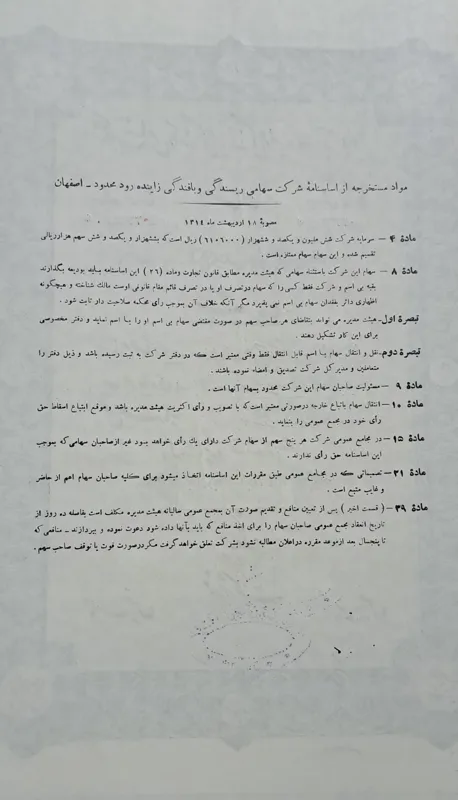 مواد مستخرجه از اساسنامهٔ شرکت سهامی ریسندگی وبافندگی زاینده رود محدود ـ اصفهان
مصوبهٔ ۱۸ اردیبهشت ماه ۱۳۱٤
مادهٔ ۴ — سرمایه شرکت شش ملیون و یکصد و ششهزار (۶۱۰۶۰۰۰) ریال است که بششهزار و یکصد و شش سهم هزارریالی
تقسیم شده و این سهام ممتازه است .
مادهٔ ۸ — سهام این شرکت باستثناء سهامی که هیئت مدیره مطابق قانون تجارت وماده (۲۶) این اساسنامه باید بودیعه بگذارند
بقیه بی اسم و شرکت فقط کسی را که سهام درتصرف او یا در تصرف قائم مقام قانونی اوست مالک شناخته و هیچگونه
اظهاری دائر بفقدان سهام بی اسم نمی پذیرد مگر آنکه خلاف آن بموجب رأی محکمه صلاحیت دار ثابت شود .
تبصرهٔ اول ـ هیئت مدیره می تواند بتقاضای هر صاحب سهم در صورت مقتضی سهام بی اسم او را با اسم نماید و دفتر مخصوصی
برای این کار تشکیل دهند .
تبصرهٔ دوم ـ نقل و انتقال سهام با اسم قابل انتقال فقط وقتی معتبر است که در دفتر شرکت به ثبت رسیده باشد و ذیل دفتر را
متعاملین و مدیر کل شرکت تصدیق و امضاء نموده باشند .
مادهٔ ۹ — مسئولیت صاحبان سهام این شرکت محدود بسهام آنها است .
مادهٔ ۱۰ — انتقال سهام باتباع خارجه درصورتی معتبر است که با تصویب و رأی اکثریت هیئت مدیره باشد وموقع ابتیاع اسقاط حق
رأی خود در مجمع عمومی را بنماید .
مادهٔ ۱۵ — در مجامع عمومی شرکت هر پنج سهم از سهام شرکت دارای یك رأی خواهد بود غیر ازصاحبان سهامی که بموجب
این اساسنامه حق رأی ندارند .
مادهٔ ۲۱ — تصمیماتی که در مجامع عمومی طبق مقررات این اساسنامه اتخاذ میشود برای کلیه صاحبان سهام اعم از حاضر
و غایب متبع است .
مادهٔ ۳۹ — ( قسمت اخیر ) پس از تعیین منافع و تقدیم صورت آن بمجمع عمومی سالیانه هیئت مدیره مکلف است بفاصله ده روز از
تاریخ انعقاد مجمع عمومی صاحبان سهام را برای اخذ منافع که باید بآنها داده شود دعوت نموده و بپردازند ـ منافعی که
تا پنجسال بعد ازموعد مقرره دراعلان مطالبه نشود بشرکت تعلق خواهد گرفت مگر درصورت فوت یا توقف صاحب سهم .